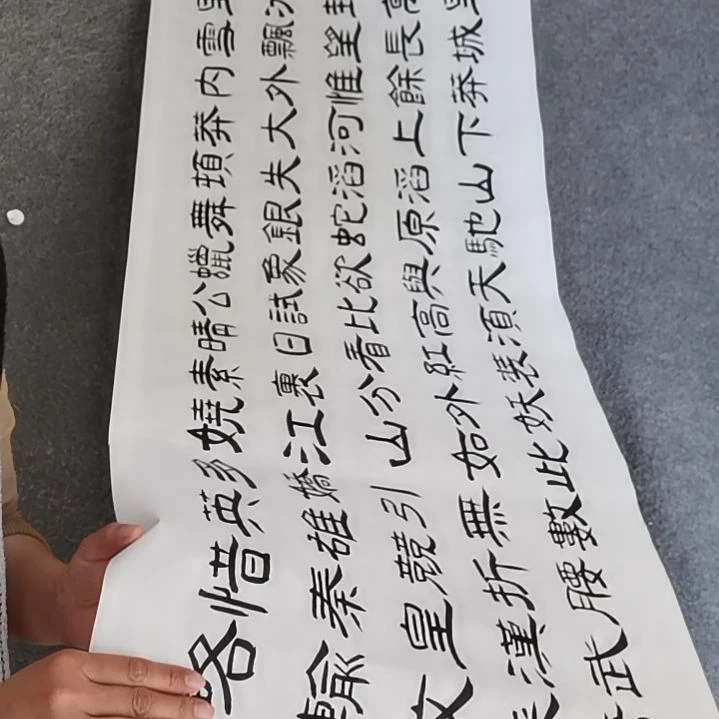 雪飄望長城
內外惟餘莽
莽大河上下
頓失滔滔山
舞銀蛇原馳
蠟象欲與天
公試比高須
晴日看紅裝
素裹分外妖
嬈江山如此
多嬌引無數
英雄競折腰
惜秦皇漢武
略輸文